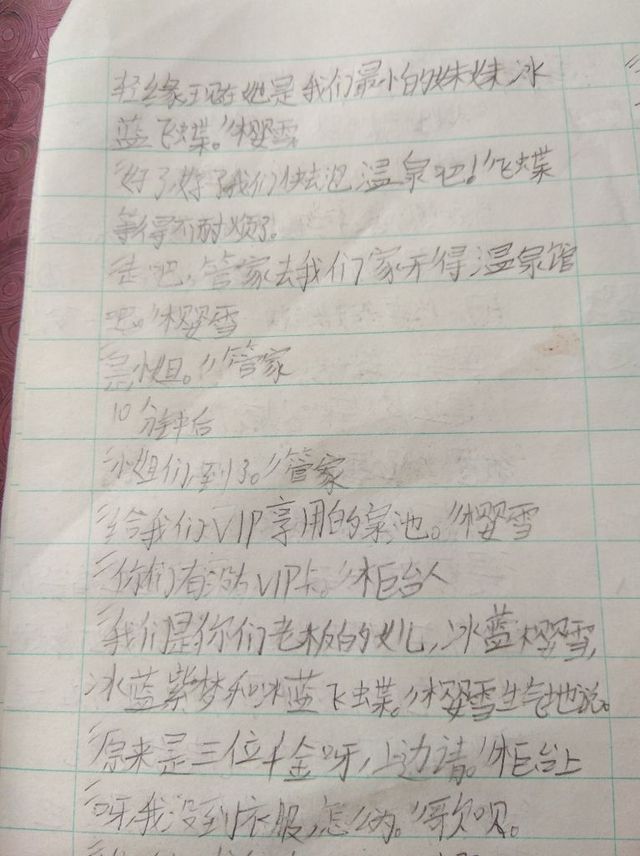 轻缘现在她是我们最小的妹妹冰
蓝飞蝶。”樱雪
“好了好了我们快去泡温泉吧！”飞蝶
等得不耐烦了。
走吧，管家去我们家开得温泉馆
吧。”樱雪
是小姐。”管家
10分钟后
“小姐们，到了。”管家
“给我们VIP享用的泉池。”樱雪
“你们有没有VIP卡。”柜台人
“我们是你们老板的女儿，冰蓝樱雪，
冰蓝紫梦和冰蓝飞蝶。”樱雪生气地说。
“原来是三位千金呀，上边请。”柜台上
“呀，我没到衣服，怎么办。”